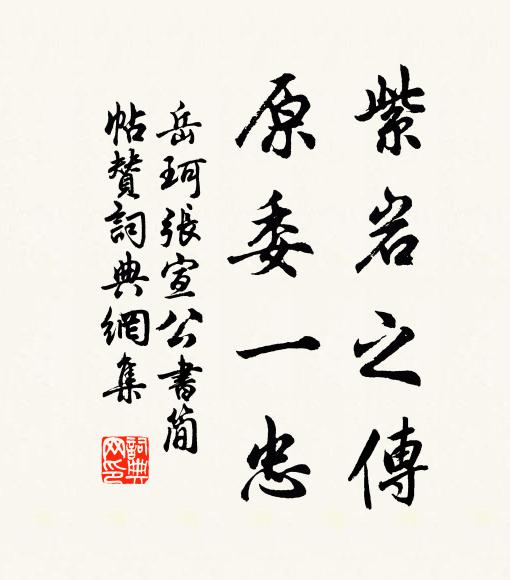 紫岩之傳
原委一忠
岳珂張宣公書簡
帖贊詞典網集
詞典网印